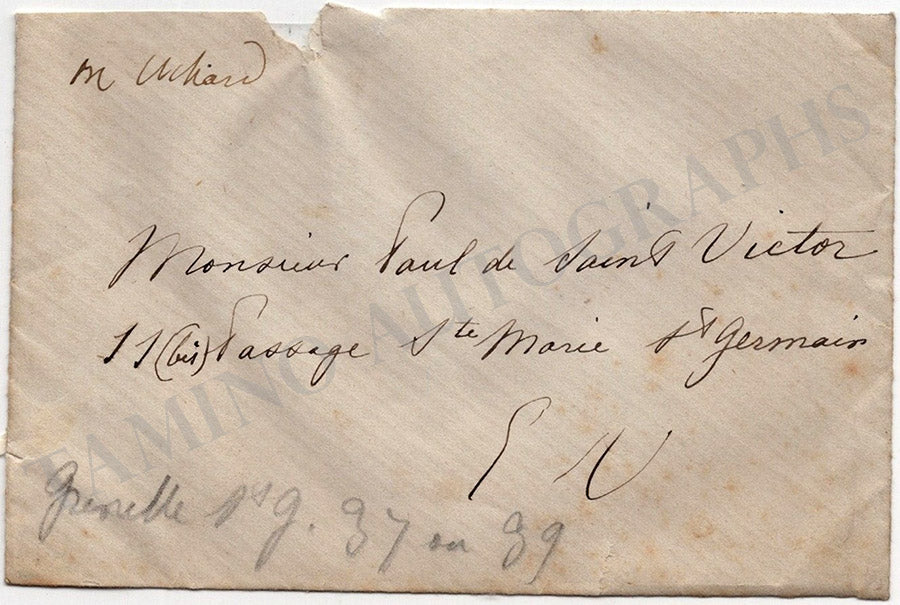 M Achard
Monsieur Paul de Saint Victor
11 (bis) Passage Ste Marie St Germain
E V
Grenelle St G. 37 ou 39
TAMINO AUTOGRAPHS